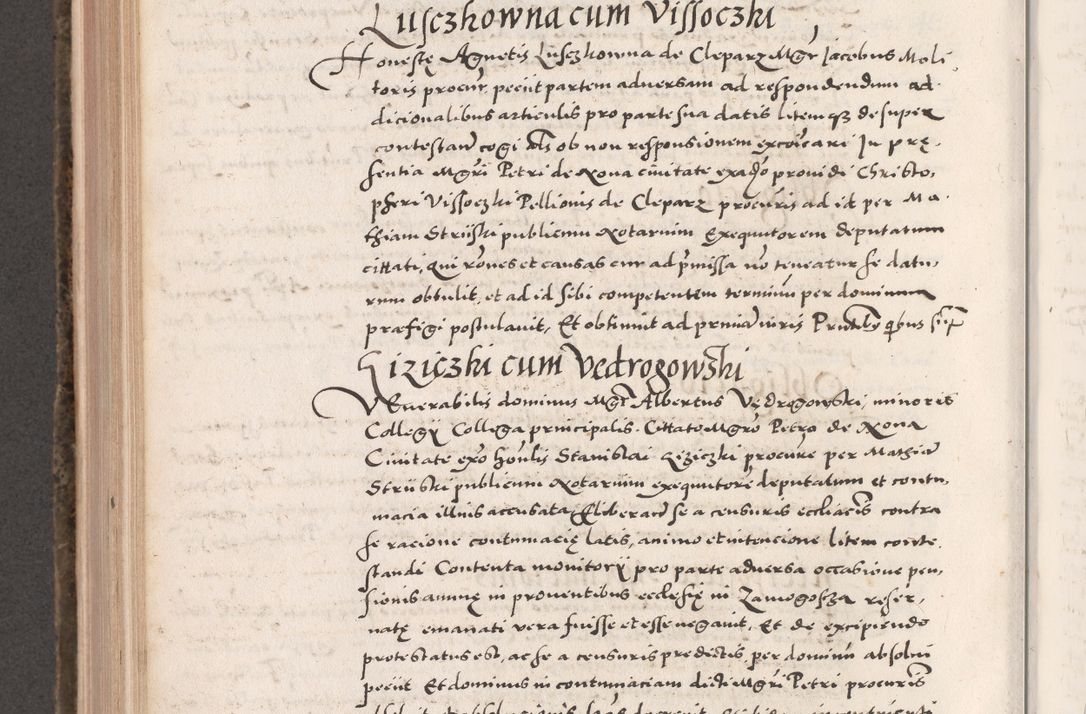 Lusczkowna cum Vissoczki
Honestę Agnetis Lusczkowna de Cleparz Mgr Jacobus Moli
toris procur. peciit partem adversam ad respondendum ad
dicionalibus articulis pro parte sua datis litemqz desuper
contestand cogi als ob non responsionem excoicari In prę
sentia Mgri Petri de Nova civitate ex ado providi Christo,
pheri Vissoczki Pellionis de Cleparz procuris ad id per Ma
thiam Strijski publicum Notarium Exequutorem deputatum
cittati, qui rones et causas cur ad pmissa no teneatur se datu,
rum obtulit, et ad id sibi competentem terminum per dominum
praefigi postulavit, Et obtinuit ad
Giziczki cum Vedrogowski
Venerabilis dominus Mgr Albertus Vędrogowski, minoris
Collegij Collega principalis. Cittato Mgro Petro de Nova
Civitate exo honlis Stanislai Giziczki procure per Mathia
Strijski publicum Notarium exequutore deputatum et contu,
macia illius accusata Eliberand se a censuris ecclacis contra
se racione contumacię latis, animo et intencione litem conte
standi Contenta monitorij pro parte adversa occasione pen,
sionis annuę in proventibus ecclesię in Zamogoscza reser,
vatę emanati vera fuisse et esse negavit, Et de excipiendo
protestatus est, ac se a censuris predictis per dominum absolvi
peciit Et dominus in contumaciam dicti Mgri Petri procuris